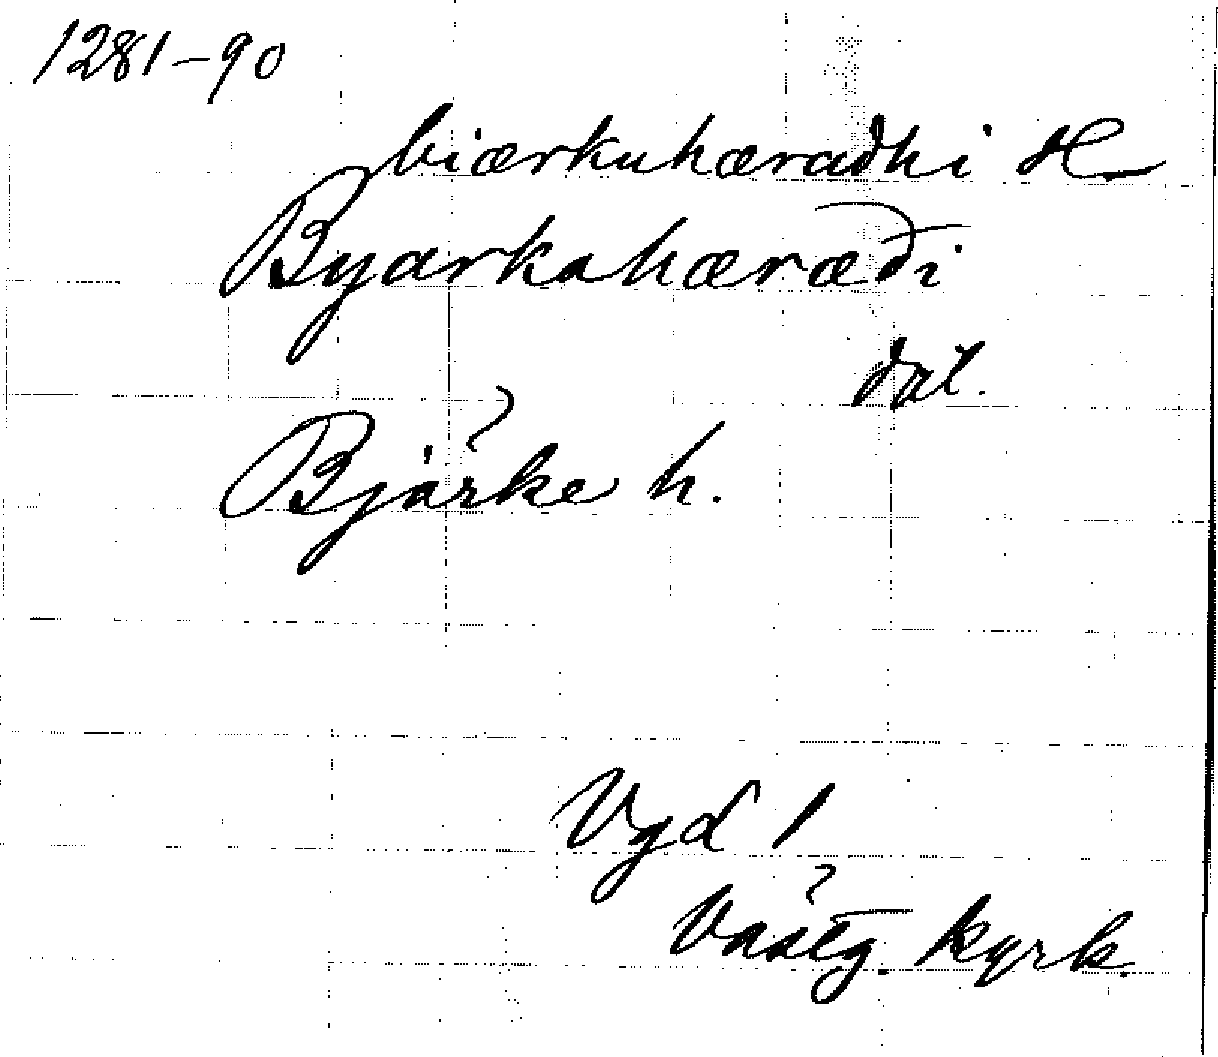 1281-90
biærkuhæradhi H
Byarkahæræði
dat.
Bjärke h.
Vgd 1
Västg. kyrk.